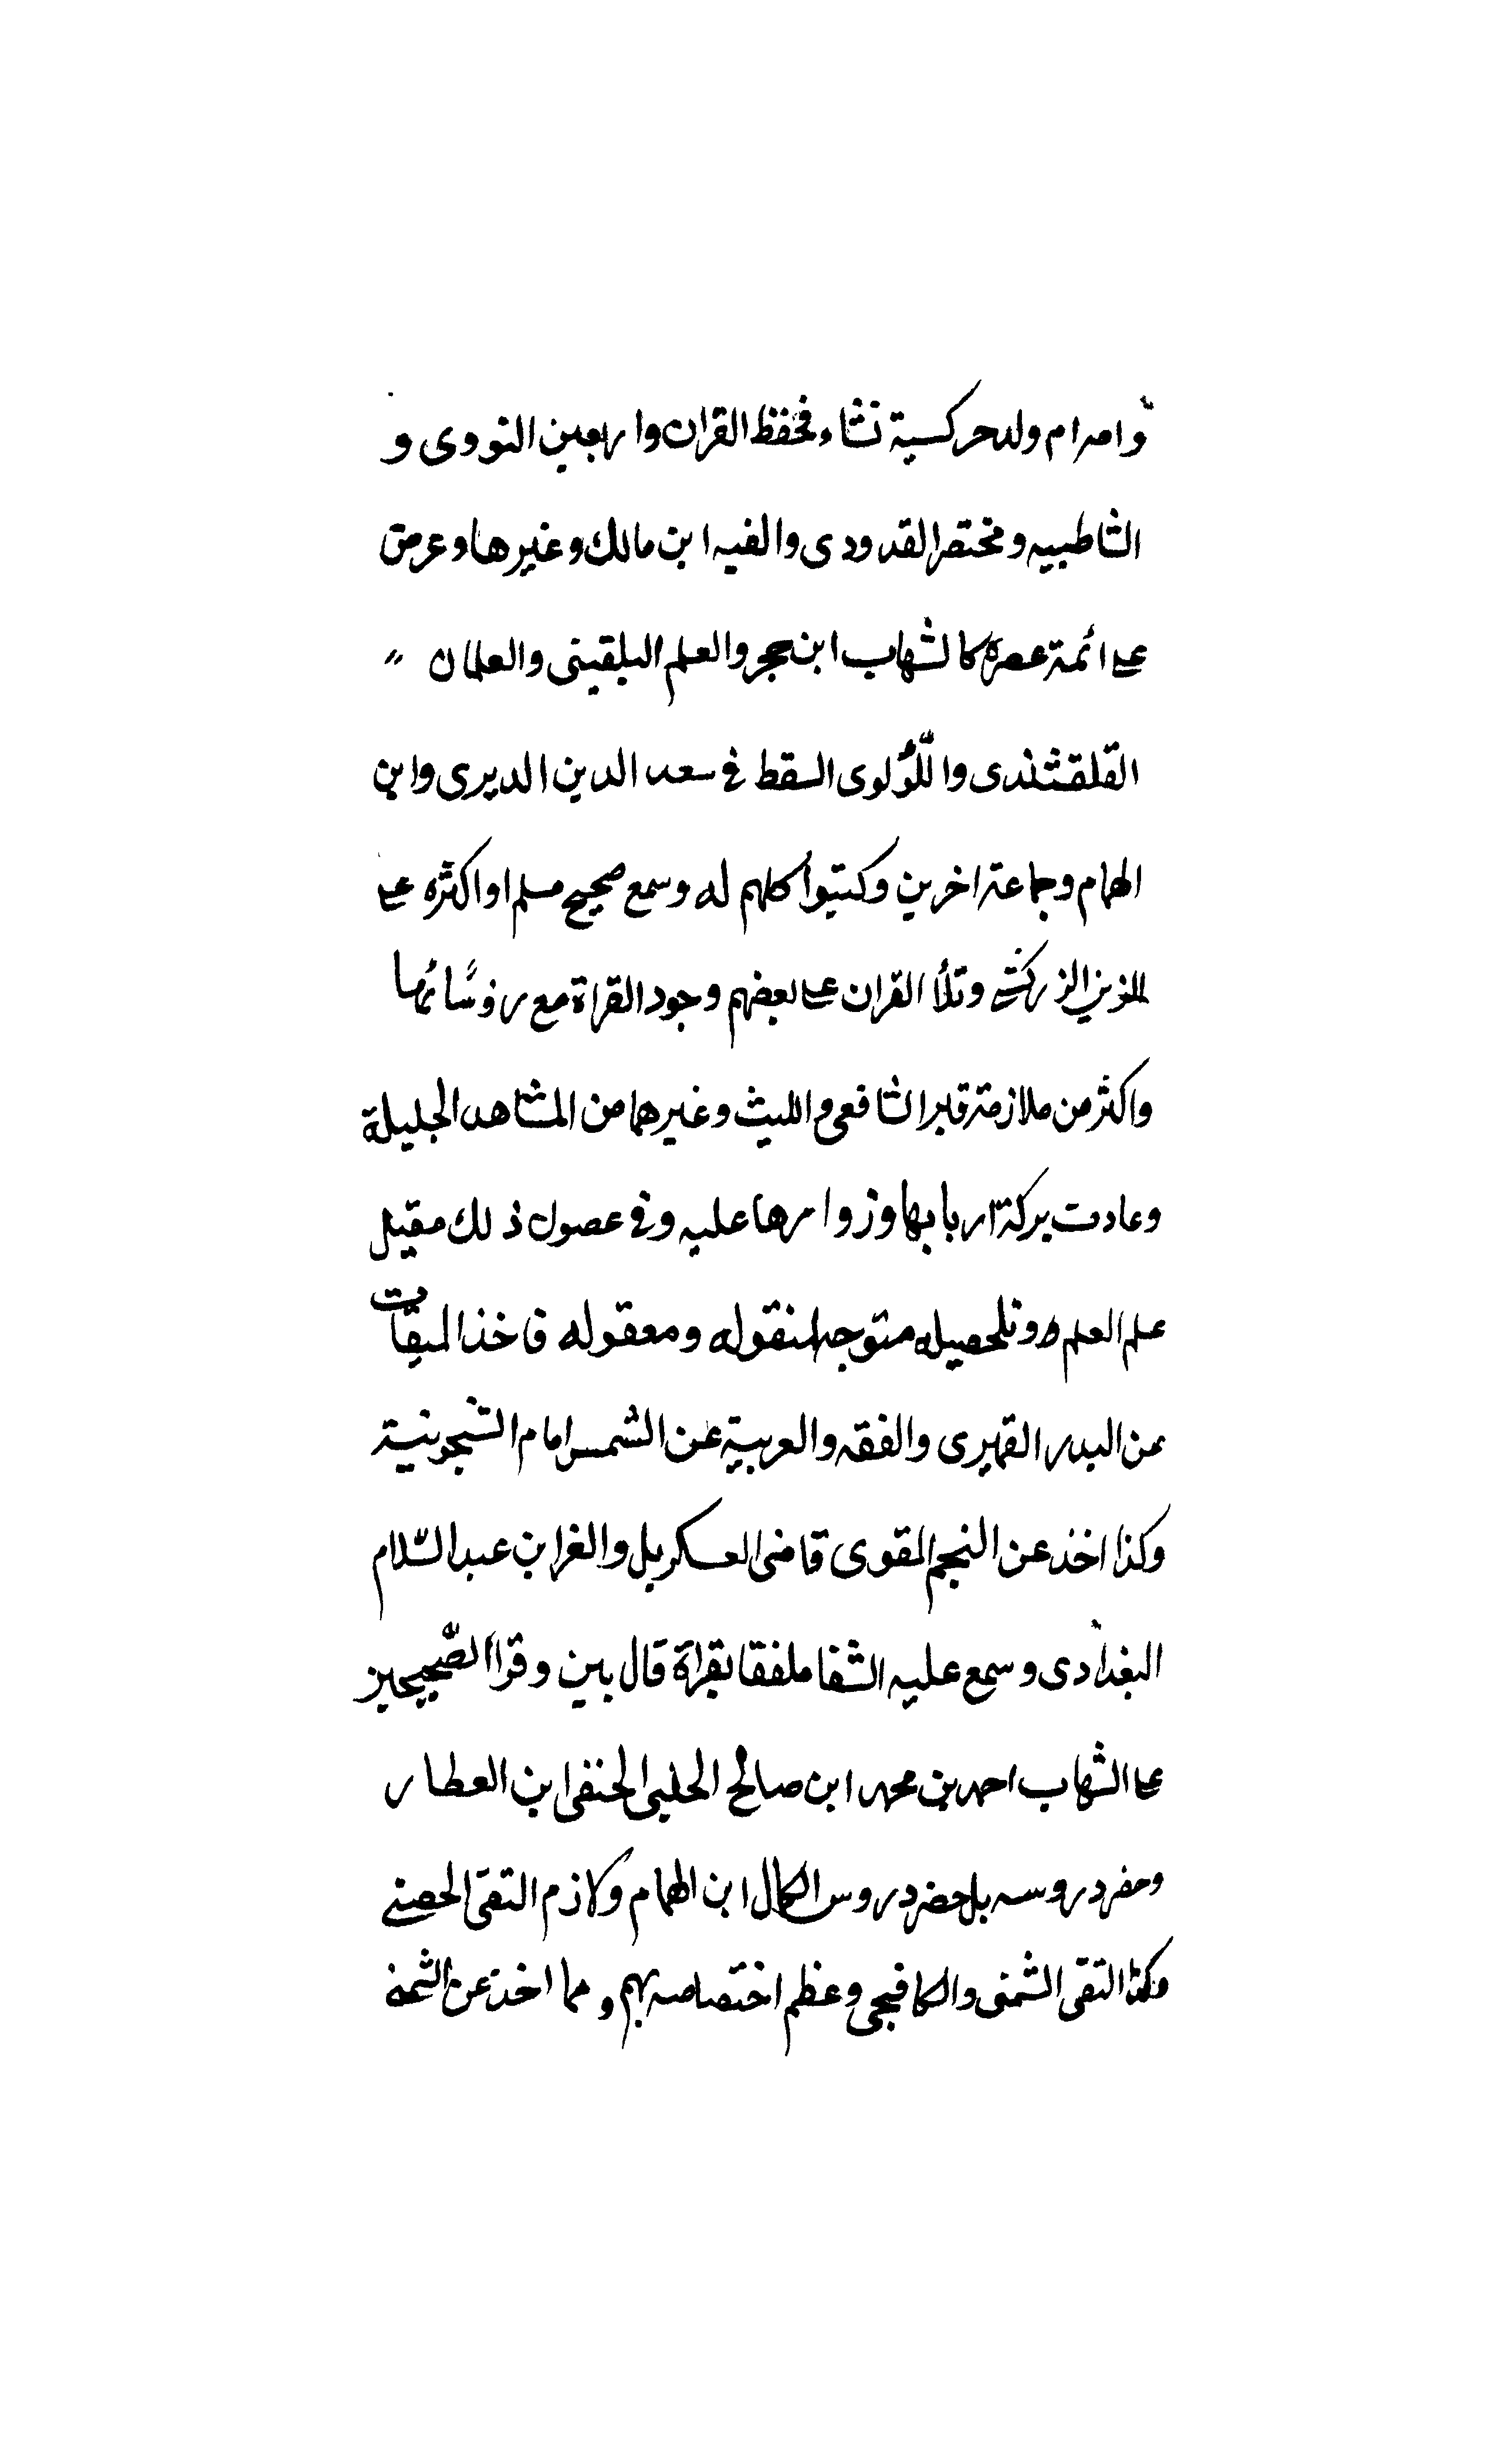 وامه ام ولد حركسية نشاء فحفظ القران واربعين النووى و
الشاطبيه ومختصر القدورى والفيه ابن مالك وغيرها وعرض
على ائمة عصره كالشهاب ابن حجر والعلم البلقينى والعلمان
القلقشندى واللّؤلوى السقطى سعد الدين الديرى وابن
الهمام وجماعة اخرين وكتبوا كلهم له وسمع صحيح مسلم او اكثره على
الزين الزركشى وتلأ القران على بعضهم وجود القراة مع رؤسائها
واكثر من ملازمة قبر الشافعى والليث وغيرهما من المشاهد الجليلة
وعادت بركة اربابها وزوارها عليه وفى غصون ذلك مقبل
على العلم وتحصيله متوجه لمنقوله ومعقوله فاخذ الميقات
عن البدر القيمرى والفقه والعربية عن الشمس امام الشيخونية
وكذا اخذ عن النجم القوى قاضى العسكر بل والعز ابن عبد السّلام
البغدادى وسمع عليه الشفا ملفقا بقراة قال بين وقرا الصّحيحين
على الشهاب احمد بن محمد ابن صالح الحلبى الحنفى ابن العطار
وحضر دروسه بل حضر دروس الكمال ابن الهمام ولازم التقى الحصنى
وكذا التقى الشمنى والكافيجى وعظم اختصاصه بهم ومما اخذ عن الشمنى